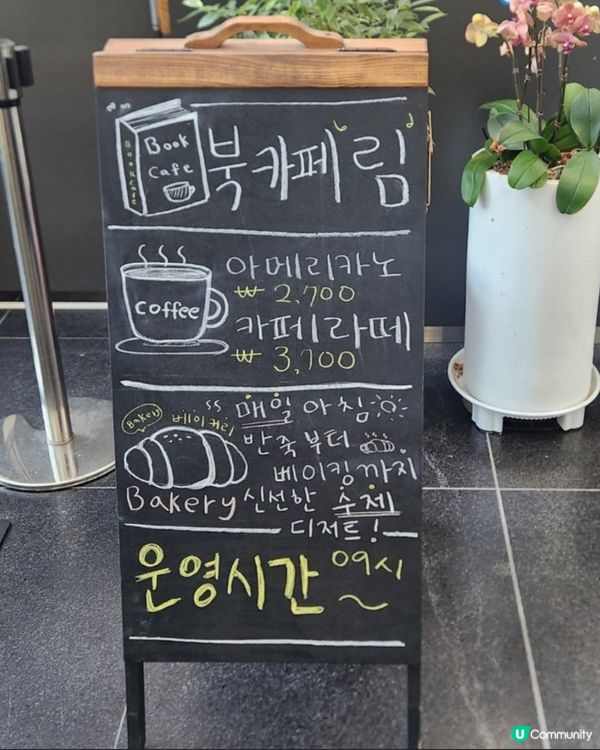 Book Cafe
Book
Cafe
북카페 림
아메리카노
₩ 2,700
Coffee
카페라떼
₩ 3,700
Bakery
베이커리
매일 아침
반죽부터
베이킹까지
Bakery 신선한 수제
디저트!
운영시간 09시
~
U Community